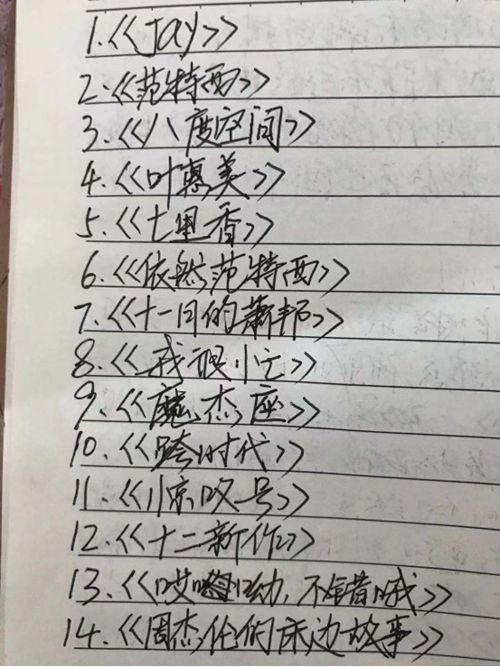 1.《Jay》
2.《范特西》
3.《八度空间》
4.《叶惠美》
5.《七里香》
6.《依然范特西》
7.《十一月的萧邦》
8.《我很忙》
9.《魔杰座》
10.《跨时代》
11.《惊叹号》
12.《十二新作》
13.《哎呦,不错哦》
14.《周杰伦的床边故事》